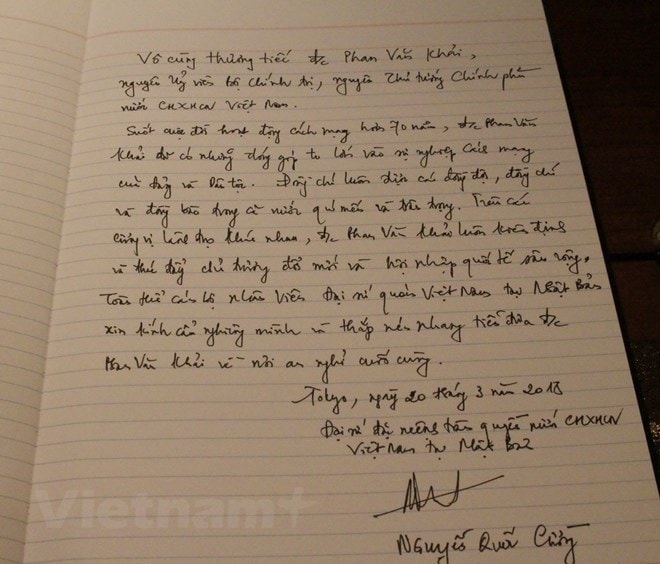 Vô cùng thương tiếc đ/c Phan Văn Khải,
nguyên Uỷ viên Bộ Chính trị, nguyên Thủ tướng Chính phủ
nước CHXHCN Việt Nam.
Suốt cuộc đời hoạt động cách mạng hơn 70 năm, đ/c Phan Văn
Khải đã có những đóng góp to lớn vào sự nghiệp cách mạng
của Đảng và Dân tộc. Đồng chí luôn được các đồng đội, đồng chí
và đồng bào trong cả nước quí mến và trân trọng. Trên các
cương vị lãnh đạo khác nhau, đ/c Phan Văn Khải luôn kiên định
và thúc đẩy chủ trương đổi mới và hội nhập quốc tế sâu rộng.
Toàn thể cán bộ nhân viên Đại sứ quán Việt Nam tại Nhật Bản
xin kính cẩn nghiêng mình và thắp nén nhang tiễn đưa đ/c
Phan Văn Khải về nơi an nghỉ cuối cùng.
Tokyo, ngày 20 tháng 3 năm 2018
Đại sứ đặc mệnh toàn quyền nước CHXHCN
Việt Nam tại Nhật Bản
Nguyễn Quốc Cường
Vietnam+